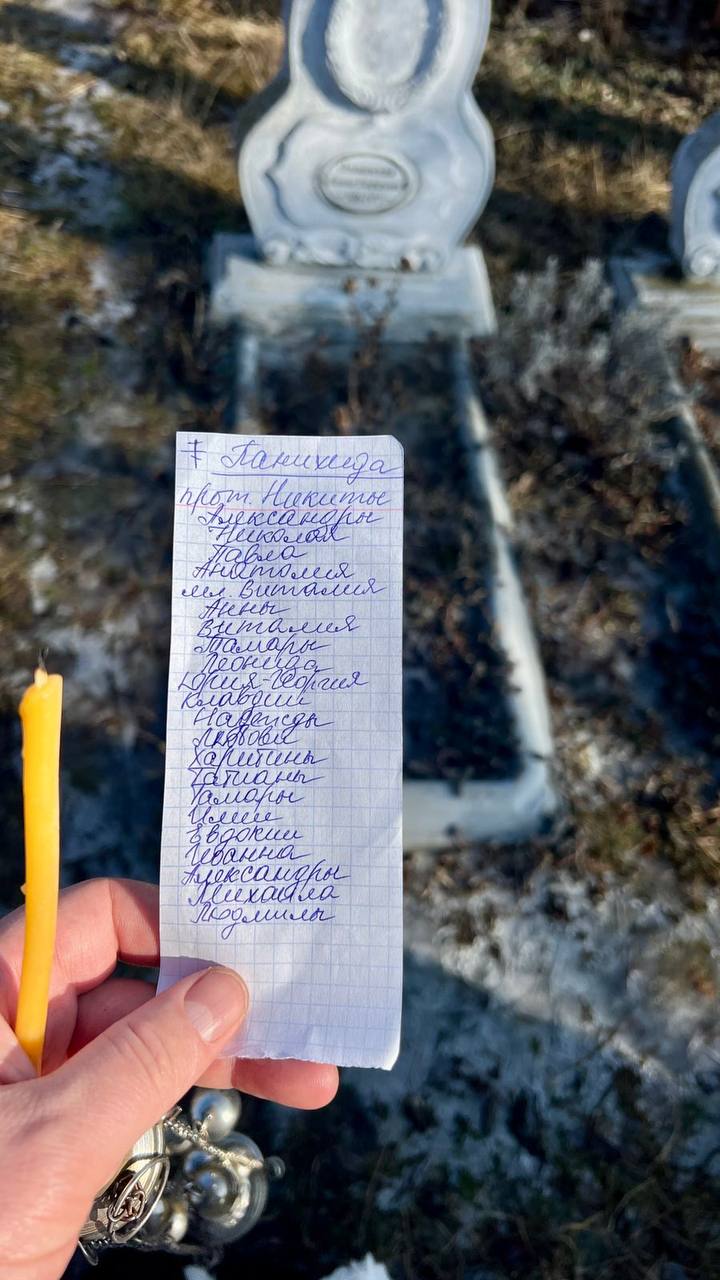 ‡ Панихида
прот. Никиты
Александры
Николая
Павла
Анатолия
мл. Виталия
Анны
Виталия
Тамары
Леонида
Юрия-Георгия
Клавдии
Надежды
Любови
Харитины
Татианы
Тамары
Илии
Евдокии
Иоанна
Александры
Михаила
Людмилы